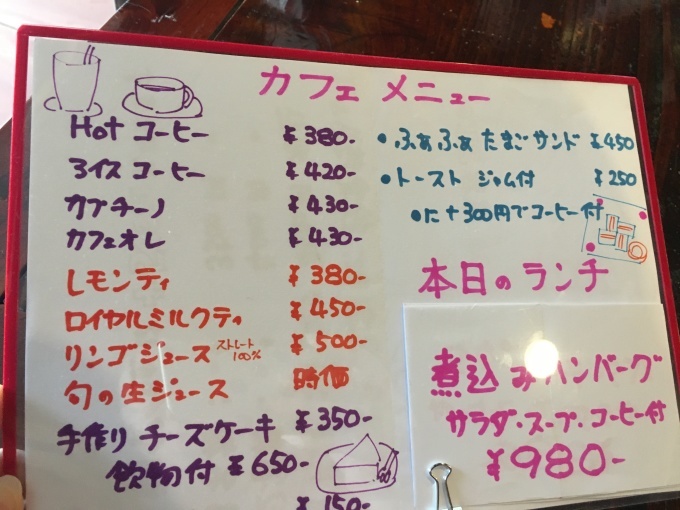 カフェ メニュー
Hot コーヒー ¥380-
アイス コーヒー ¥420-
カプチーノ ¥430-
カフェオレ ¥430-
レモンティ ¥380-
ロイヤルミルクティ ¥450-
リンゴジュース ストレート100% ¥500-
旬の生ジュース 時価
手作り チーズケーキ ¥350-
飲物付 ¥650-
¥150-
・ふぁふぁ たまごサンド ¥450
・トースト ジャム付 ¥250
・に+300円でコーヒー付
本日のランチ
煮込みハンバーグ
サラダ・スープ・コーヒー付
¥980-